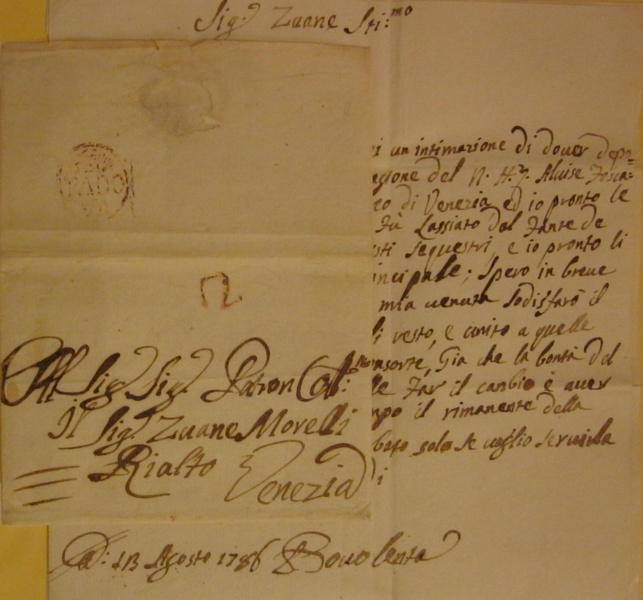 Sig:r Zuane Sti:mo
un intimazione di dover depo=
del N. H. Aluise Fosca=
di Venezia, ed io pronto le
Fù Lassiato dal Fante de
sequestri, e io pronto li
incipale; Spero in breve
mia venuta Sodisfarò il
resto, e unito a quelle
onsorte, Gia che la bontà del
Far il cambio è aver
mpo il rimanente della
solo se voglio servirla
PADO
All Sig:r Sig:r Patron Col:mo
Il Sig:r Zuane Morelli
Rialto Venezia
Ad: 13 Agosto 1786 Bovolenta